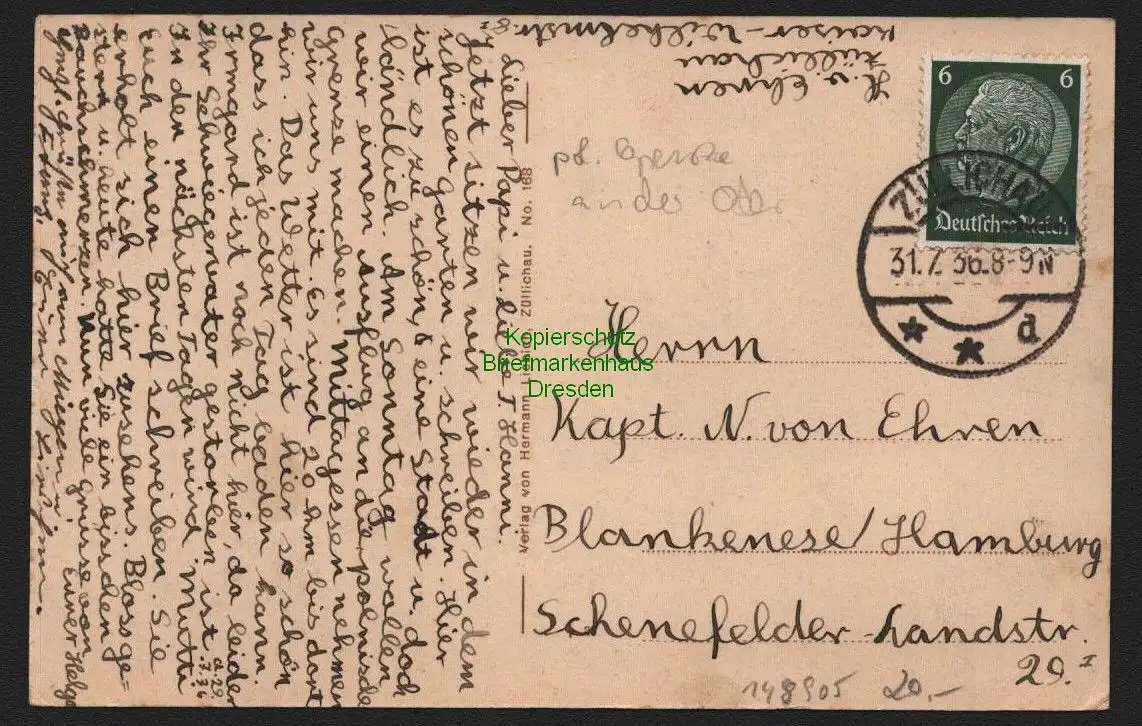 H. v. Ehren
Züllichau
Kaiser-Wilhelmstr. 8 II
Lieber Papi u. liebe T. Hanni.
Jetzt sitzen wir wieder in dem
schönen Garten u. schreiben. Hier
ist es zu schön, eine Stadt u. doch
ländlich. Am Sonntag wollen
wir einen Ausflug an die polnische
Grenze machen. Mittagessen nehmen
wir uns mit. Es sind 20 km bis dort
hin. Das Wetter ist hier so schön
dass ich jeden Tag baden kann.
Irmgard ist noch nicht hier, da leider
Ihr Schwiegervater gestorben ist.
a. 29. 7. 36
In den nächsten Tagen wird Mutti
Euch einen Brief schreiben. Sie
erholt sich hier zusehens. Bloss ge=
stern u. heute hatte Sie ein bisschen
Bauchschmerzen. Nun viele Grüsse von
Eurer Helga
Verlag von Hermann Liebich, Züllichau. No. 168
6 6
Deutsches Reich
ZÜLLICHAU
31.7.36.8-9N
d
an der Oder
Herrn
Kapt. N. von Ehren
Blankenese/Hamburg
Schenefelder-Landstr.
29. I
148905 20,-
Kopierschutz
Briefmarkenhaus
Dresden